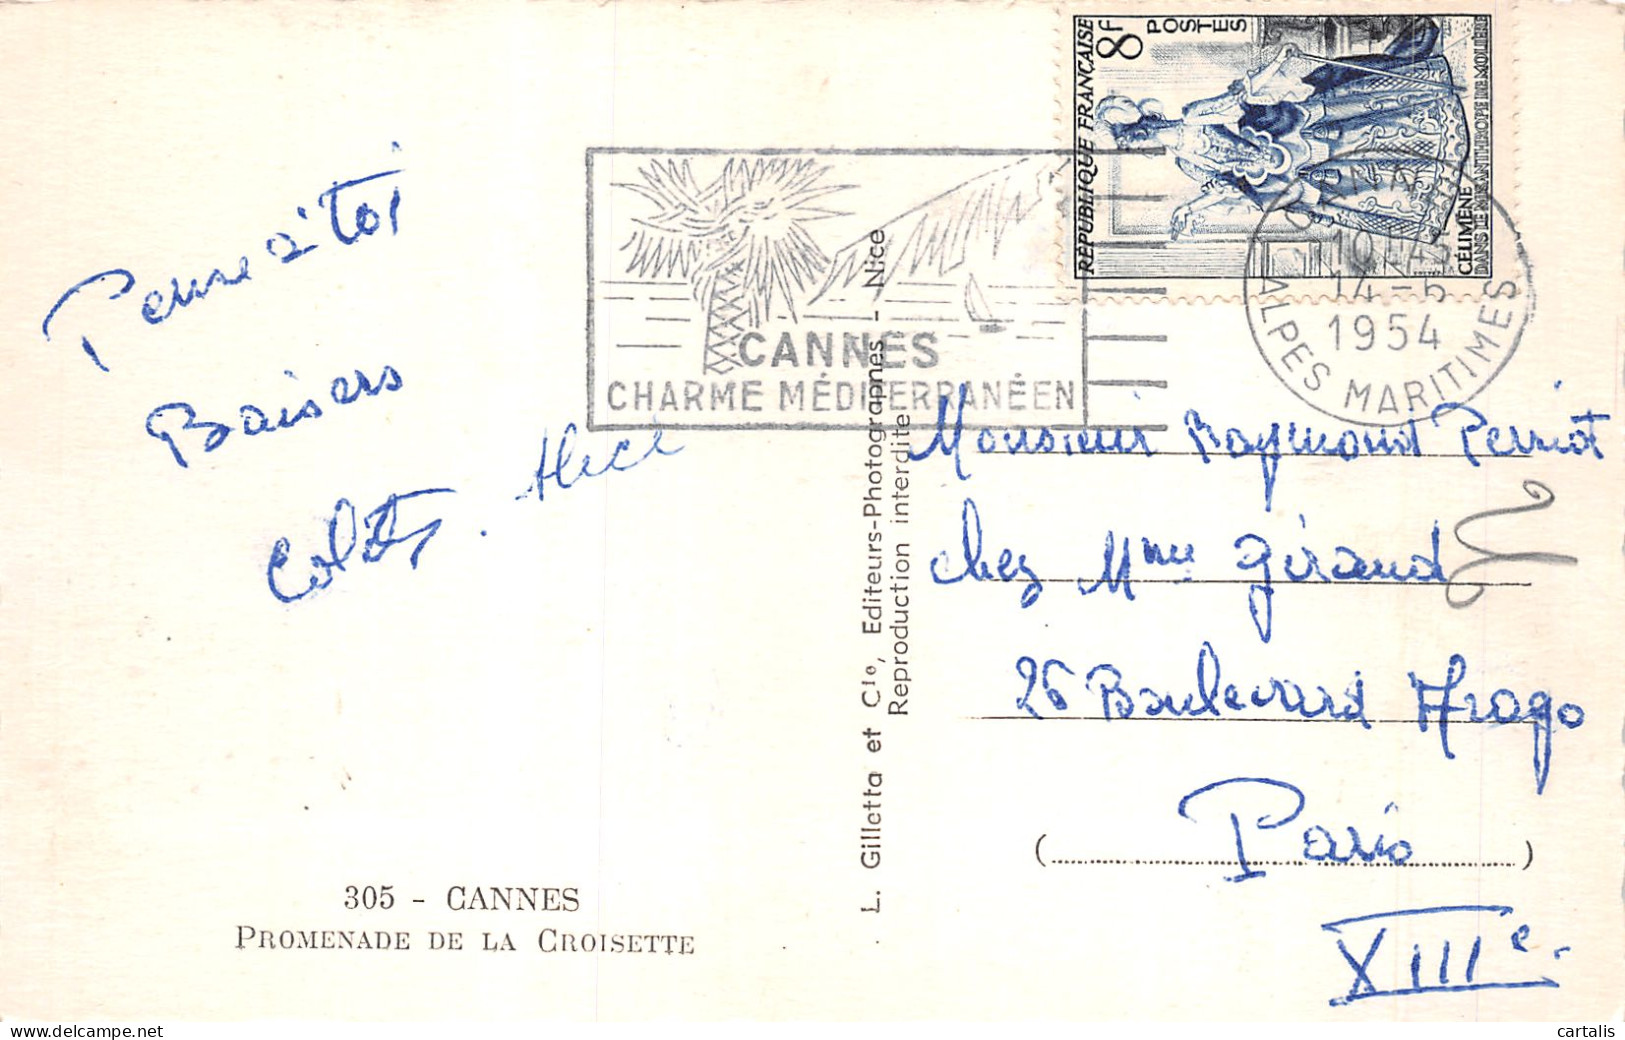 Pense à toi
Baisers
Colette. Alice
305 - CANNES
PROMENADE DE LA CROISETTE
L. Gilletta et Cie, Editeurs-Photographes - Nice
Reproduction interdite
CANNES
CHARME MÉDITERRANÉEN
RÉPUBLIQUE FRANÇAISE
8F
POSTES
CÉLIMÈNE
DANS LE MISANTHROPE DE MOLIÈRE
CANNES
14-5
1954
ALPES MARITIMES
Monsieur Raymond Perriot
chez Mme Giraud
26 Boulevard Arago
(Paris)
XIIIe.
cartalis